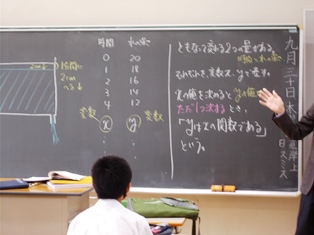 2cm
1分間に
2cm
へる
時間 水の深さ
0 20
1 18
2 16
3 14
4 12
変数 変数
x y
ともなって変わる2つの量がある。
時間と水の深さ
それぞれを、変数x、yで表す。
xの値を決めるとyの値が
ただ1つ決まるとき、
「yはxの関数である」
という。
九月三十日木